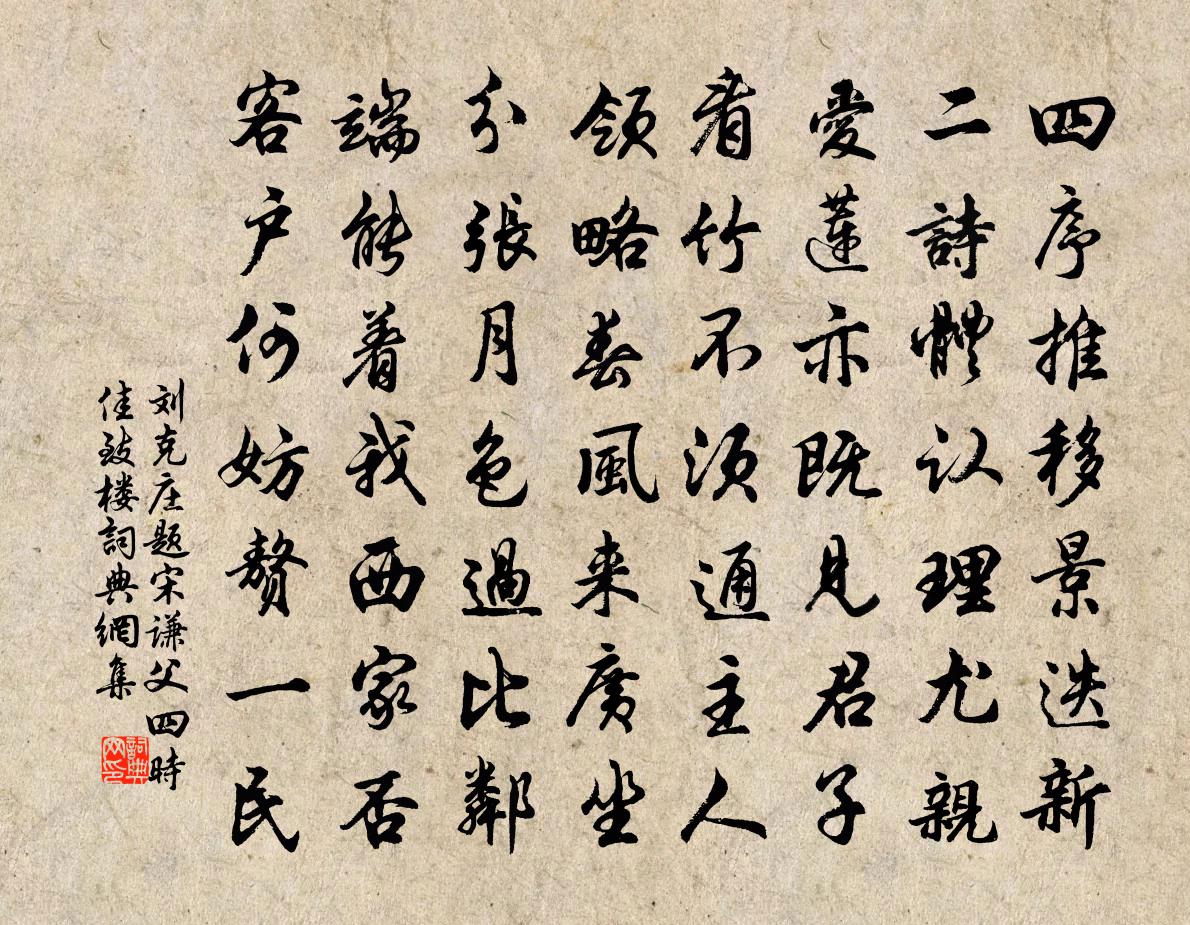 四序推移景迭新
二詩體认理尤親
愛蓮亦既見君子
看竹不须通主人
領略春風来廣坐
分張月色過比鄰
端能着我西家否
客户何妨赘一民
刘克庄题宋谦父四時
佳致楼詞典網集
詞典网印